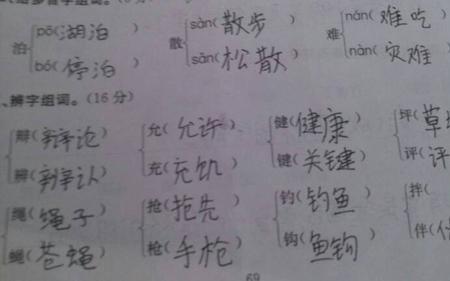 多音字组词。
泊 pō(湖泊) 散 sàn(散步) 难 nán(难吃)
bó(停泊) sǎn(松散) nàn(灾难)
、辨字组词。(16分)
辩(辩论) 允(允许) 健(健康) 坪(草
辨(辨认) 充(充饥) 键(关键) 评(评
绳(绳子) 抢(抢先) 钓(钓鱼) 拌(
蝇(苍蝇) 枪(手枪) 钩(鱼钩) 伴(
69